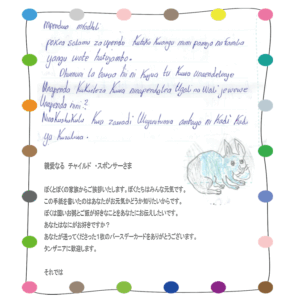 mpendwa mfadhili
pokea salamu za upendo kutoka kwangu mimi pamoja na familia
yangu wote hatujambo.
Dhumuni la barua hii ni kujua tu kuwa unaendeleaje
Unapenda kukueleza kuwa ninapendelea Ugali na Wali je wewe
Unapenda nini?
Ninakushukuru kwa zawadi uliyonitumia ambayo ni Kadi
ya Kuzaliwa.
親愛なる チャイルド・スポンサーさま
ぼくとぼくの家族からご挨拶いたします。ぼくたちはみんな元気です。
この手紙を書いたのはあなたがお元気かどうか知りたいからです。
ぼくは固いお粥とご飯が好きなことをあなたにお伝えしたいです。
あなたはなにがお好きですか?
あなたが送ってくださった1枚のバースデーカードをありがとうございます。
タンザニアに歓迎します。
それでは